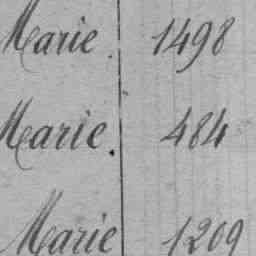 Marie. 1498
Marie. 484
Marie 1209